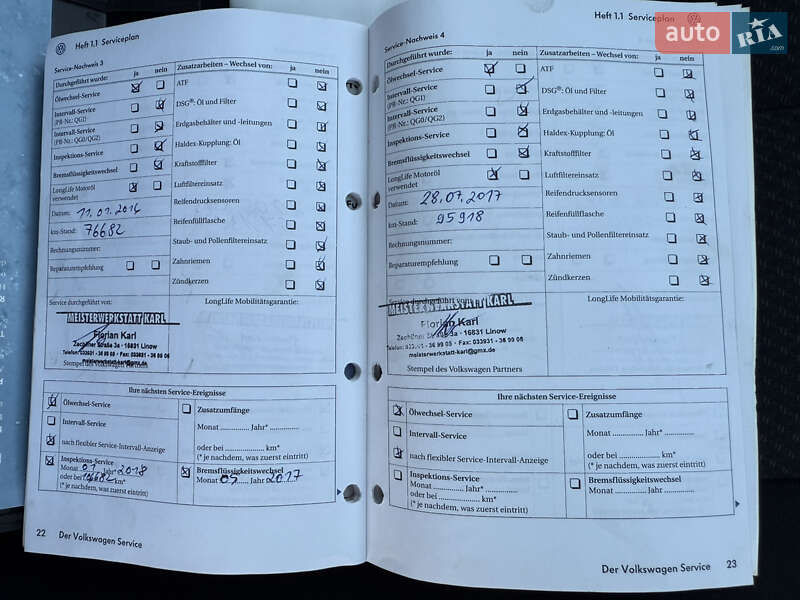 Heft 1.1 Serviceplan
Service-Nachweis 3
Durchgeführt wurde: ja nein
Ölwechsel-Service
Intervall-Service
(PR-Nr.: QG1)
Intervall-Service
(PR-Nr.: QG0/QG2)
Inspektions-Service
Bremsflüssigkeitswechsel
LongLife Motoröl
verwendet
Datum: 11.01.2016
km-Stand: 76682
Rechnungsnummer:
Reparaturempfehlung
Zusatzarbeiten – Wechsel von: ja nein
ATF
DSG®: Öl und Filter
Erdgasbehälter und -leitungen
Haldex-Kupplung: Öl
Kraftstofffilter
Luftfiltereinsatz
Reifendrucksensoren
Reifenfüllflasche
Staub- und Pollenfiltereinsatz
Zahnriemen
Zündkerzen
Service durchgeführt von:
MEISTERWERKSTATT KARL
Florian Karl
Zechliner Straße 3a · 16831 Linow
Telefon: 033931 - 36 99 05 · Fax: 033931 - 36 99 06
meisterwerkstatt-karl@gmx.de
Stempel des Volkswagen Partners
LongLife Mobilitätsgarantie:
Ihre nächsten Service-Ereignisse
Ölwechsel-Service
Intervall-Service
nach flexibler Service-Intervall-Anzeige
Inspektions-Service
Monat 01 Jahr 2018
oder bei km*
(* je nachdem, was zuerst eintritt)
Zusatzumfänge
Monat Jahr*
oder bei km*
(* je nachdem, was zuerst eintritt)
Bremsflüssigkeitswechsel
Monat 05 Jahr 2017
22 Der Volkswagen Service
Heft 1.1 Serviceplan
Service-Nachweis 4
Durchgeführt wurde: ja nein
Ölwechsel-Service
Intervall-Service
(PR-Nr.: QG1)
Intervall-Service
(PR-Nr.: QG0/QG2)
Inspektions-Service
Bremsflüssigkeitswechsel
LongLife Motoröl
verwendet
Datum: 28.07.2017
km-Stand: 95918
Rechnungsnummer:
Reparaturempfehlung
Zusatzarbeiten – Wechsel von: ja nein
ATF
DSG®: Öl und Filter
Erdgasbehälter und -leitungen
Haldex-Kupplung: Öl
Kraftstofffilter
Luftfiltereinsatz
Reifendrucksensoren
Reifenfüllflasche
Staub- und Pollenfiltereinsatz
Zahnriemen
Zündkerzen
Service durchgeführt von:
MEISTERWERKSTATT KARL
Florian Karl
Zechliner Straße 3a · 16831 Linow
Telefon: 033931 - 36 99 05 · Fax: 033931 - 36 99 06
meisterwerkstatt-karl@gmx.de
Stempel des Volkswagen Partners
LongLife Mobilitätsgarantie:
Ihre nächsten Service-Ereignisse
Ölwechsel-Service
Intervall-Service
nach flexibler Service-Intervall-Anzeige
Inspektions-Service
Monat Jahr*
oder bei km*
(* je nachdem, was zuerst eintritt)
Zusatzumfänge
Monat Jahr*
oder bei km*
(* je nachdem, was zuerst eintritt)
Bremsflüssigkeitswechsel
Monat Jahr
Der Volkswagen Service 23
auto RIA .com